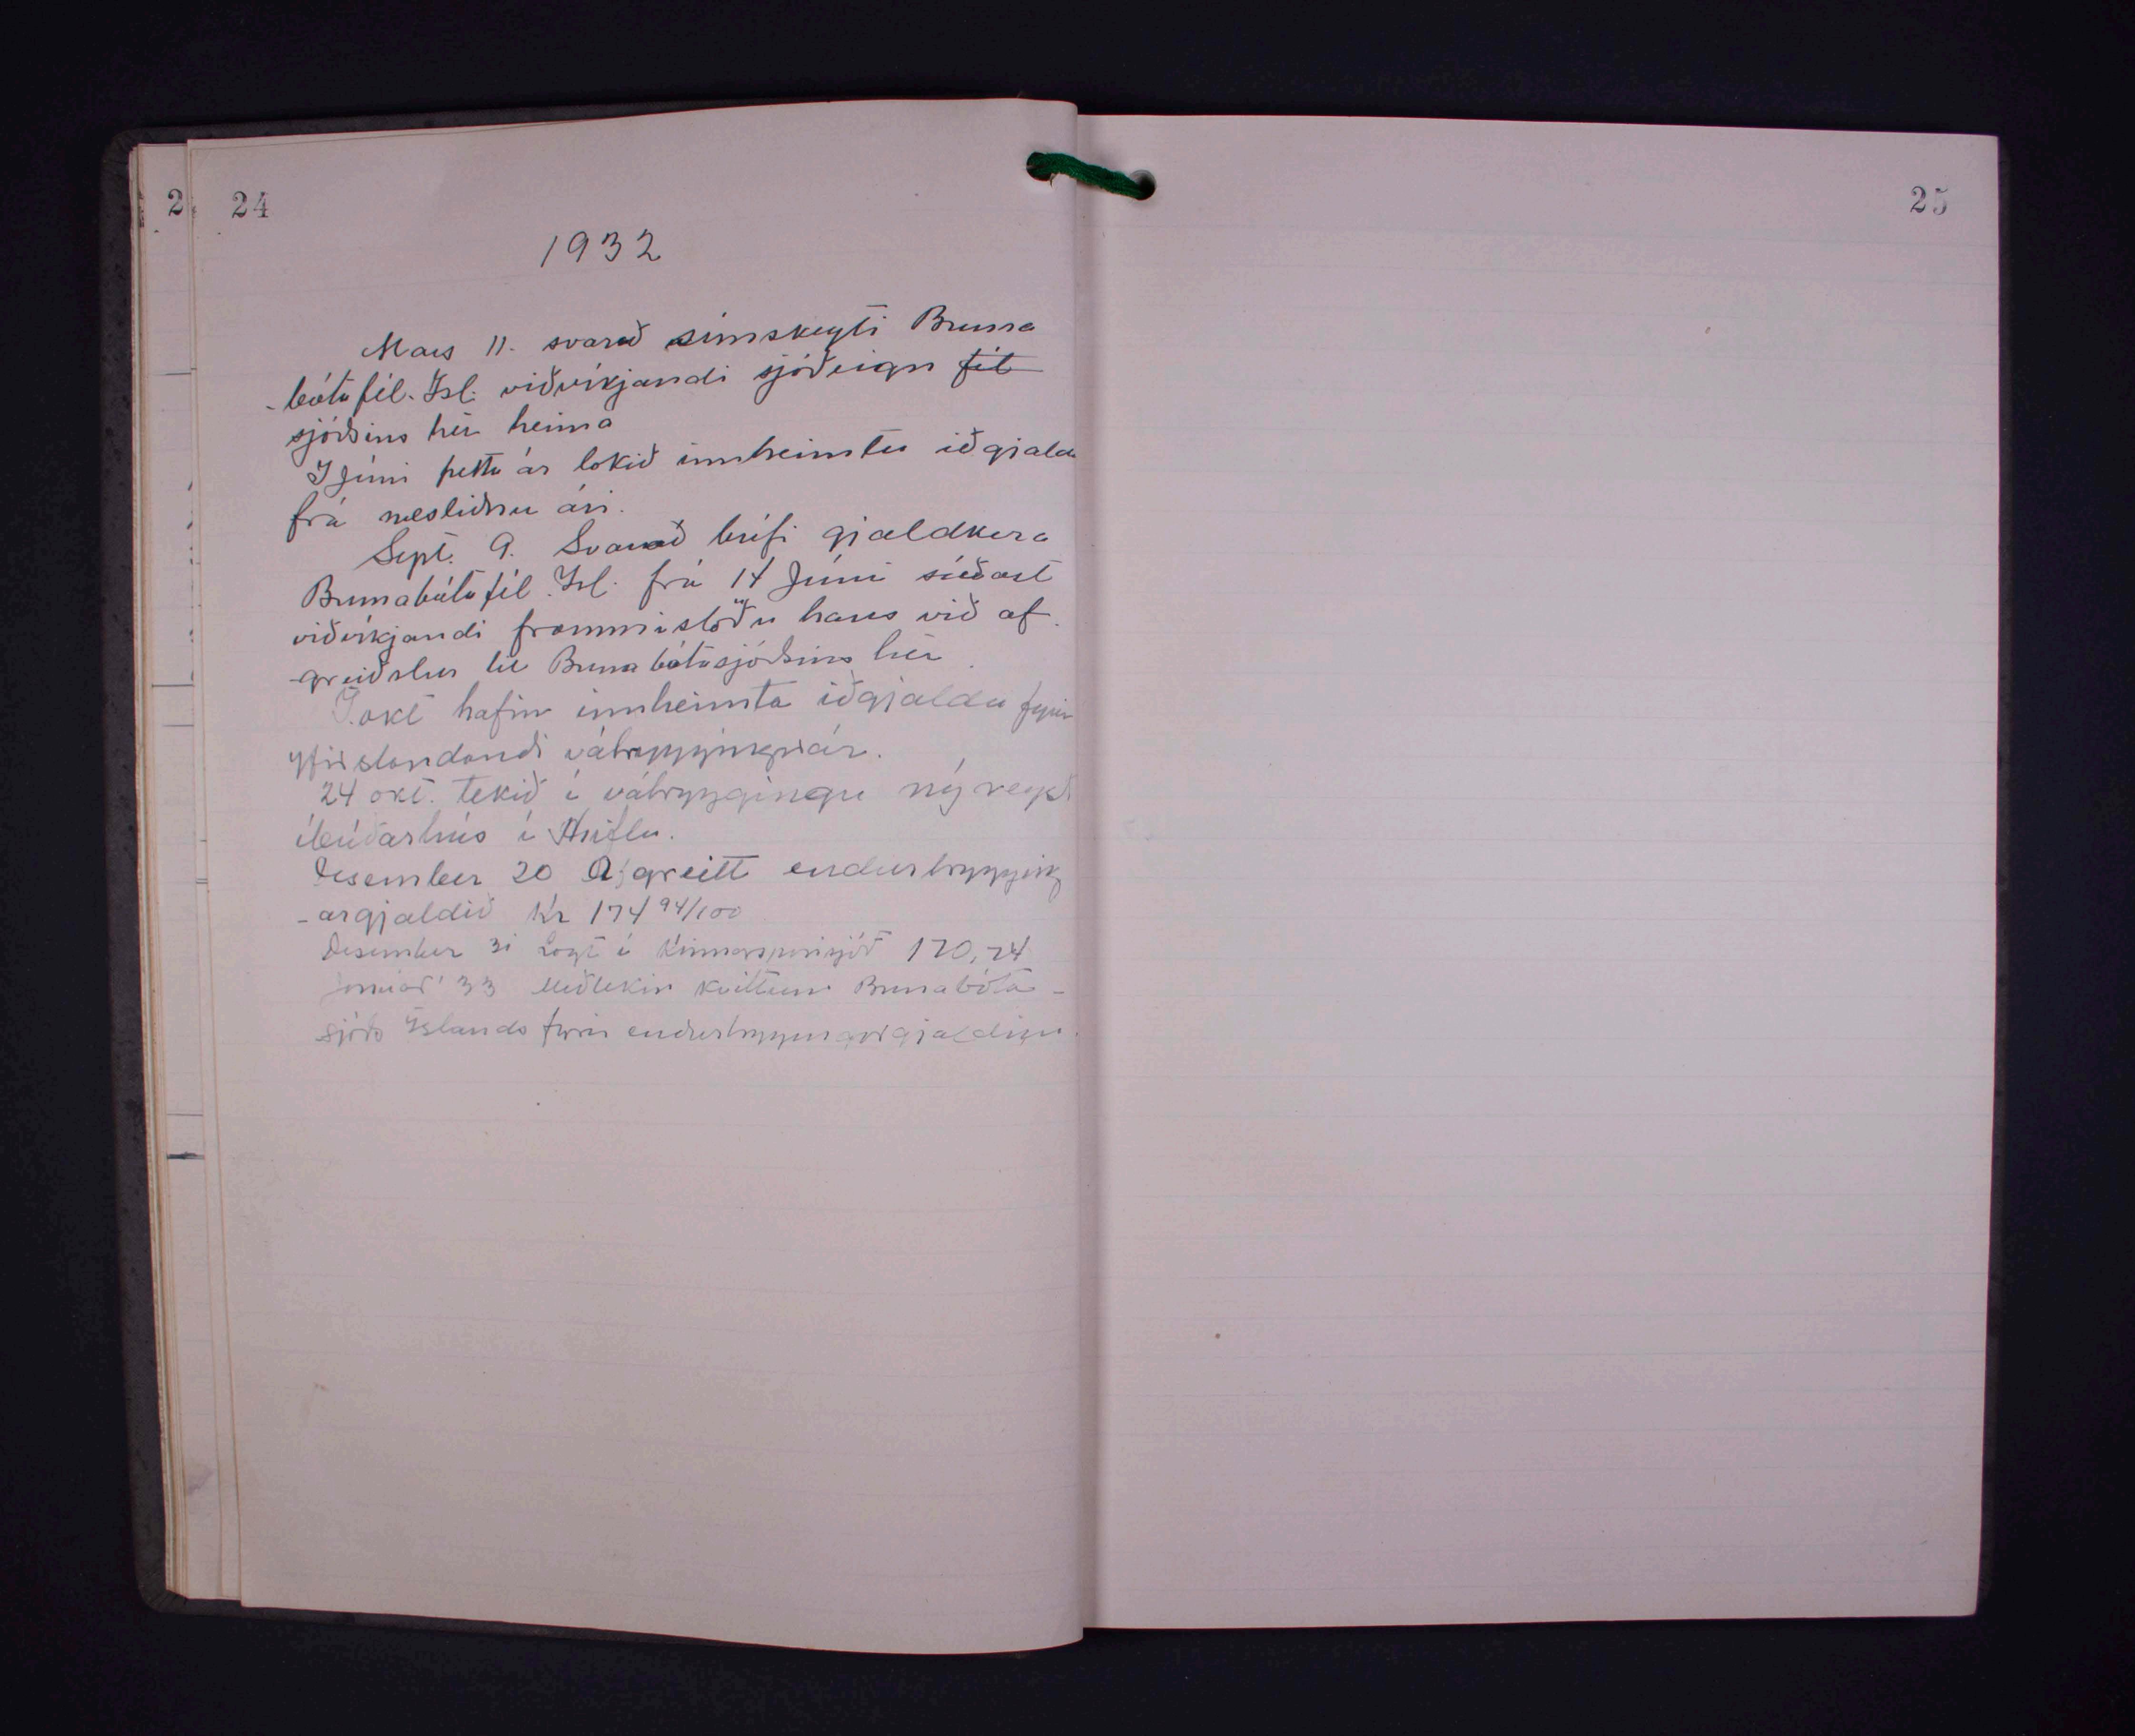 2 24
25
1932
Mars 11. svarað símskeyti Bruna
-bótafél. Ísl. viðvíkjandi sjóðeign fél
sjóðsins hér heima
Í Júni þetta ár lokið innheimtu iðgjalda
frá næsliðnu ári.
Sept. 9. Svarað bréfi gjaldkera
Brunabótafél. Ísl. frá 14 Júni síðast
viðvíkjandi frammistöðu hans við af
-greiðslur til Brunabótasjóðsins hér
Í okt hafin innheimta iðgjalda fyrir
yfirstandandi vátryggingarár.
24 okt. tekið í vátryggingu ný reyst
íbúðarhús í
Desember 20 Afgreitt endurtrygging
-argjaldið Kr 174 94/100
Desember 31 Lagt í 170,74
33 Meðtekin kvittun Brunabóta-
sjóðs Íslands fyrir endurtryggingargjaldinu.